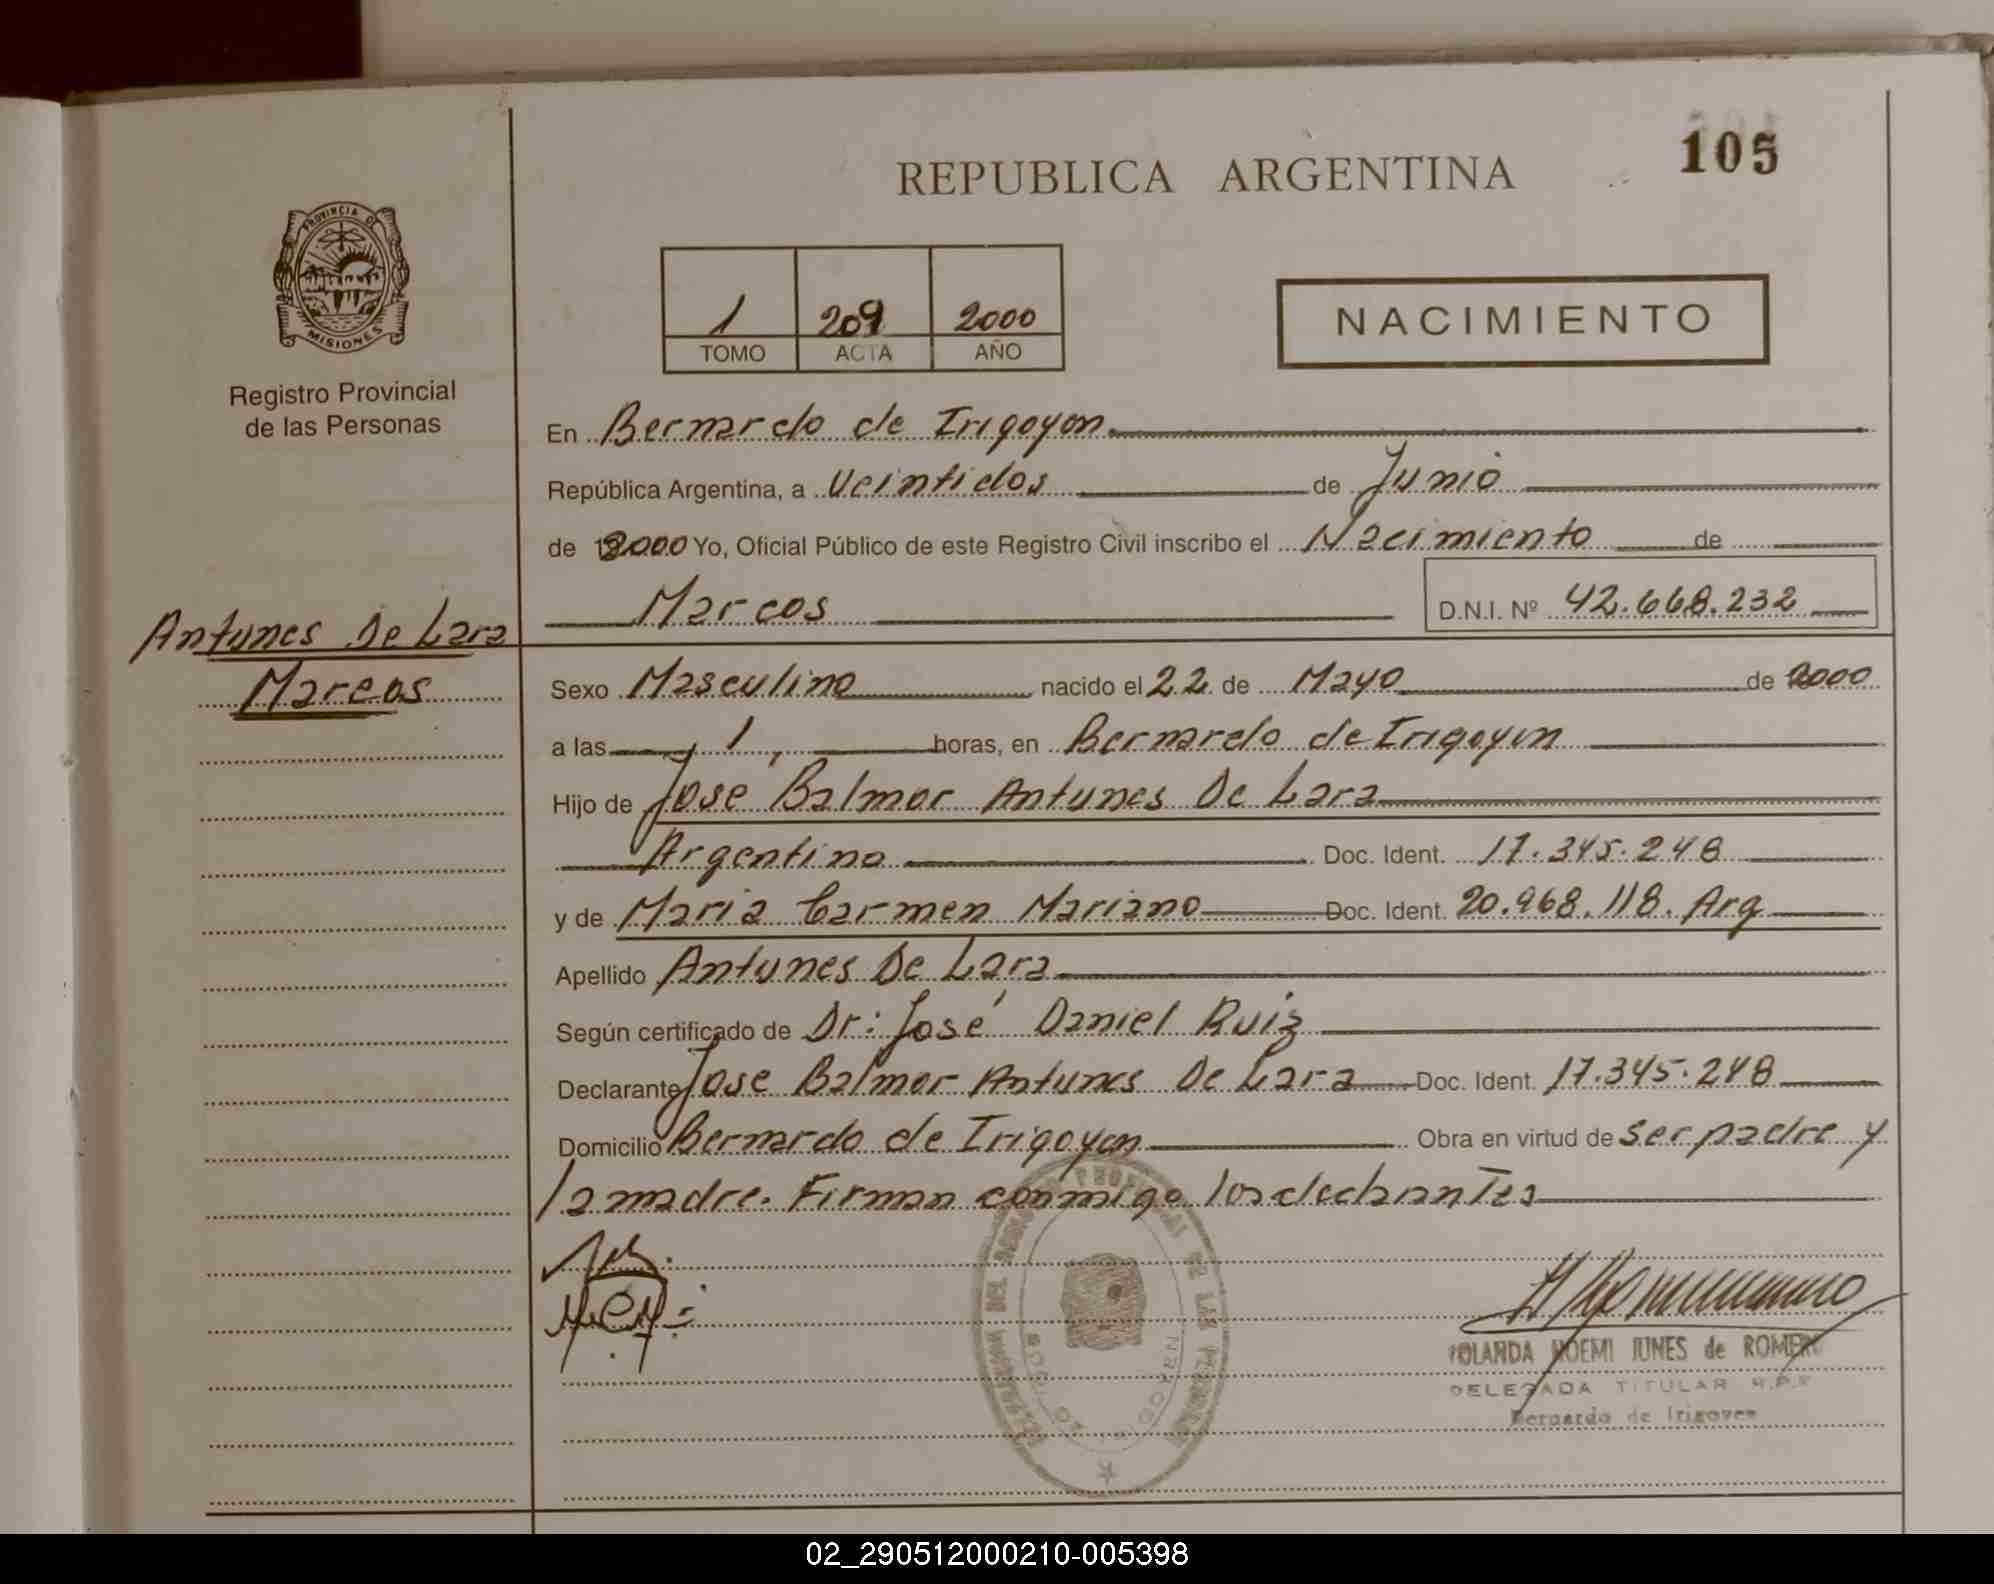 105
REPUBLICA ARGENTINA
PROVINCIA DE
MISIONES
Registro Provincial
de las Personas
1 209 2000
TOMO ACTA AÑO
NACIMIENTO
En Bernardo de Irigoyen
República Argentina, a Veintidos de Junio
de 2000 Yo, Oficial Público de este Registro Civil inscribo el Nacimiento de
Marcos D.N.I. Nº 42.668.232
Antunes De Lara
Marcos
Sexo Masculino nacido el 22 de Mayo de 2000
a las 1, horas, en Bernardo de Irigoyen
Hijo de José Balmor Antunes De Lara
Argentino Doc. Ident. 17.345.248
y de Maria Carmen Mariano Doc. Ident. 20.968.118. Arg
Apellido Antunes De Lara
Según certificado de Dr: José Daniel Ruiz
Declarante Jose Balmor Antunes De Lara Doc. Ident. 17.345.248
Domicilio Bernardo de Irigoyen Obra en virtud de ser padre y
la madre. Firman conmigo los declarantes
YOLANDA NOEMI JUNES de ROMERO
DELEGADA TITULAR R.P.P
Bernardo de Irigoyen
02_290512000210-005398